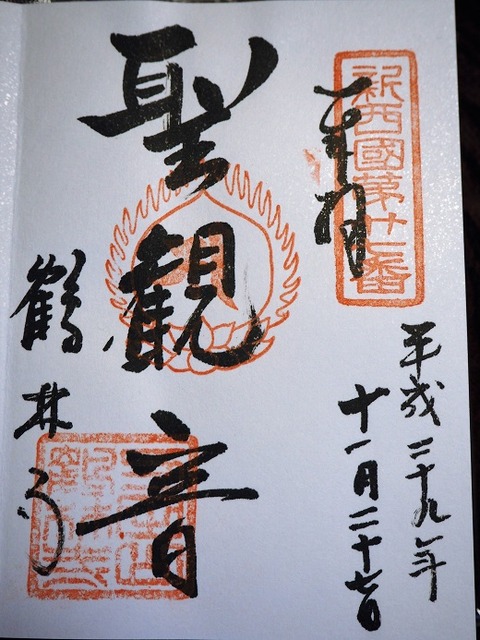 新西國第廿七番
奉拝
平成二十九年
十一月二十七日
聖観音
鶴林寺